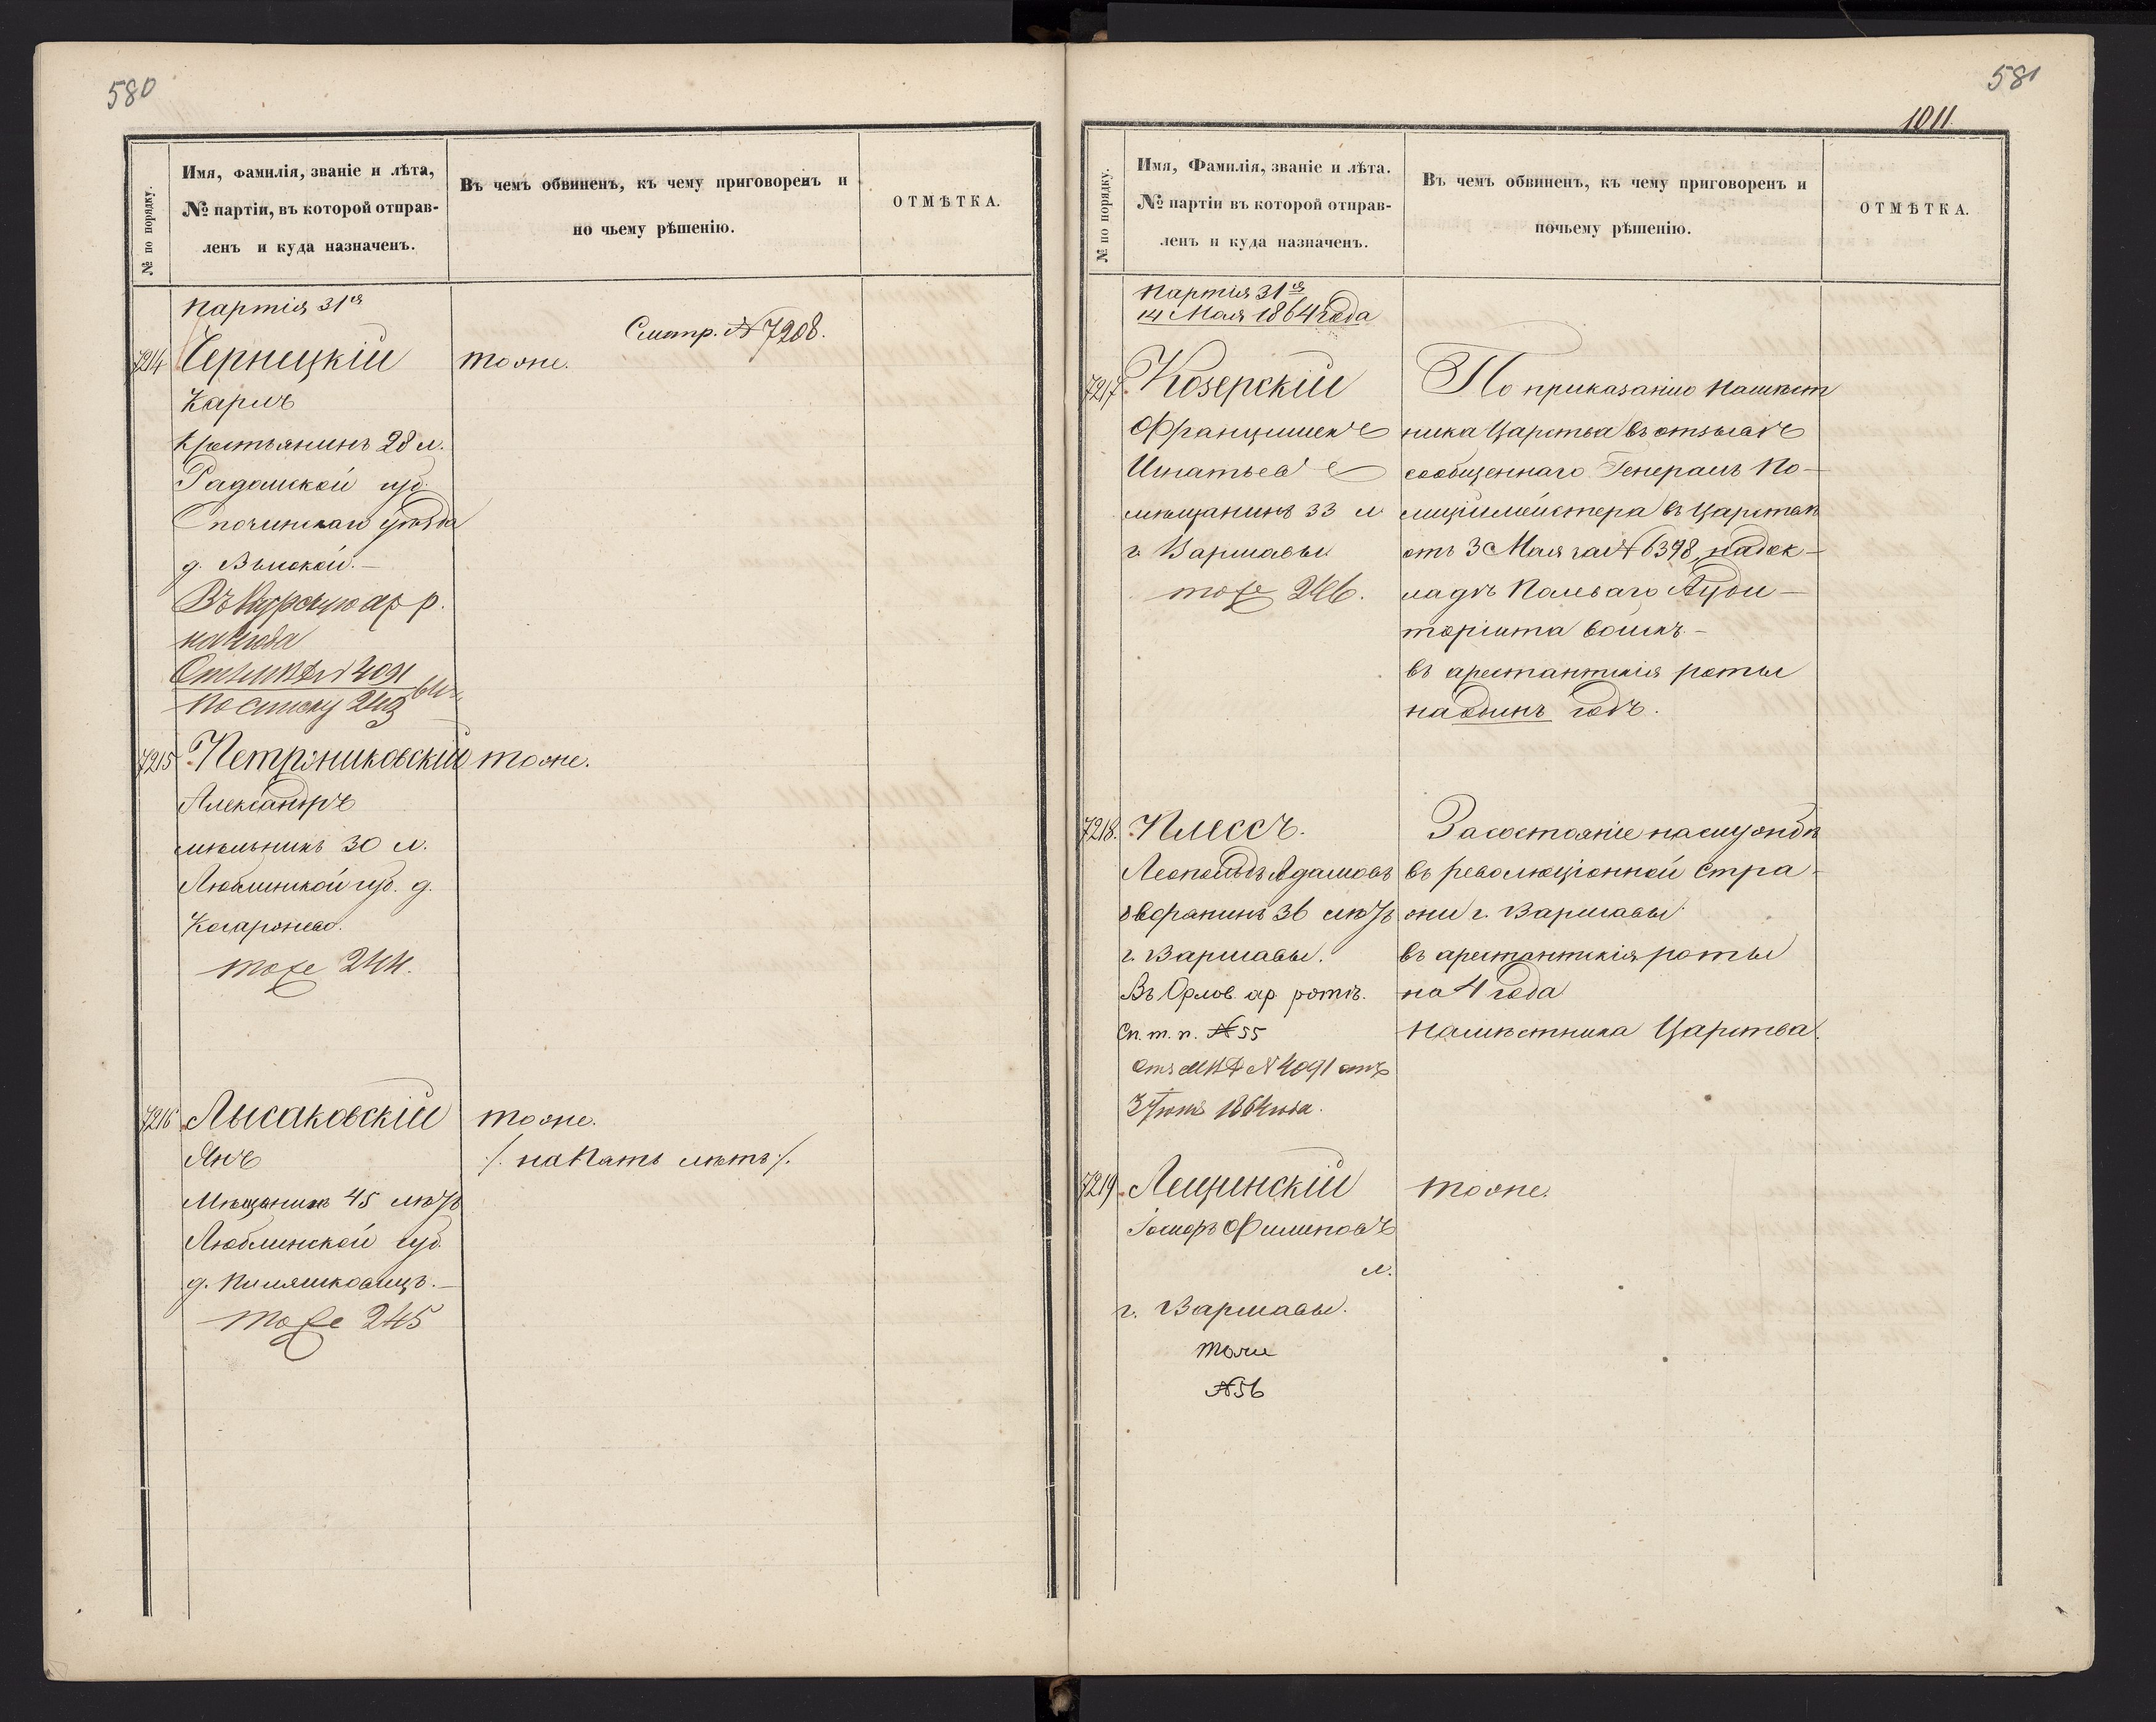 580
№ по порядку.
Имя, фамилія, званіе и лѣта,
№ партіи, въ которой отправ-
ленъ и куда назначенъ.
Въ чемъ обвиненъ, къ чему приговоренъ и
по чьему рѣшенію.
ОТМѢТКА.
Партія 31я
Смотр. № 7208.
7214 Чернецкій тоже.
Карлъ
Крестьянинъ 28 л.
Радомской губ.
Опочинскаго уѣзда
д.
Въ Курскую ар. р.
на года
От М В Д № 4091
По списку 243
7215 Петрониковскій тоже.
Александръ
мѣльникъ 30 л.
Люблинской губ. д.
тоже 244.
7216 Лысаковскій тоже.
Янъ ./. на Пять лѣтъ ./.
Мѣщанинъ 45 лѣтъ
Люблинской губ.
д.
тоже 245
581
1011.
№ по порядку.
Имя, Фамилія, званіе и лѣта.
№ партіи въ которой отправ-
ленъ и куда назначенъ.
Въ чемъ обвиненъ, къ чему приговоренъ и
почьему рѣшенію.
ОТМѢТКА.
Партія 31я
14 Мая 1864 года
7217. Козерскій По приказанію Намѣст
Францишекъ ника Царства въ отзывѣ
Игнатьевъ сообщеннаго Генералъ По-
мѣщанинъ 33 л лиціймейстера въ Царствѣ
г. Варшавы отъ 3 Мая за № 6398, на док-
тоже 246. ладѣ Полеваго Ауди-
торіата войскъ.-
въ арестантскія роты
на одинъ годъ.
7218. Плессъ. За состояніе на службѣ
Леопольдъ Адамовъ въ революціонной Стра-
дворянинъ 36 лѣтъ жи г. Варшавы
г. Варшавы. въ арестантскія роты
Въ Орлов. ар. ротѣ. на 4 года
Сп. т. п. № 55 Намѣстника Царства.
Отъ МВД № 4091 отъ
3 Іюня 1864 года.
7219. Лещинскій тоже.
Іосифъ Филиповъ
л.
г. Варшавы.
тоже
№ 56